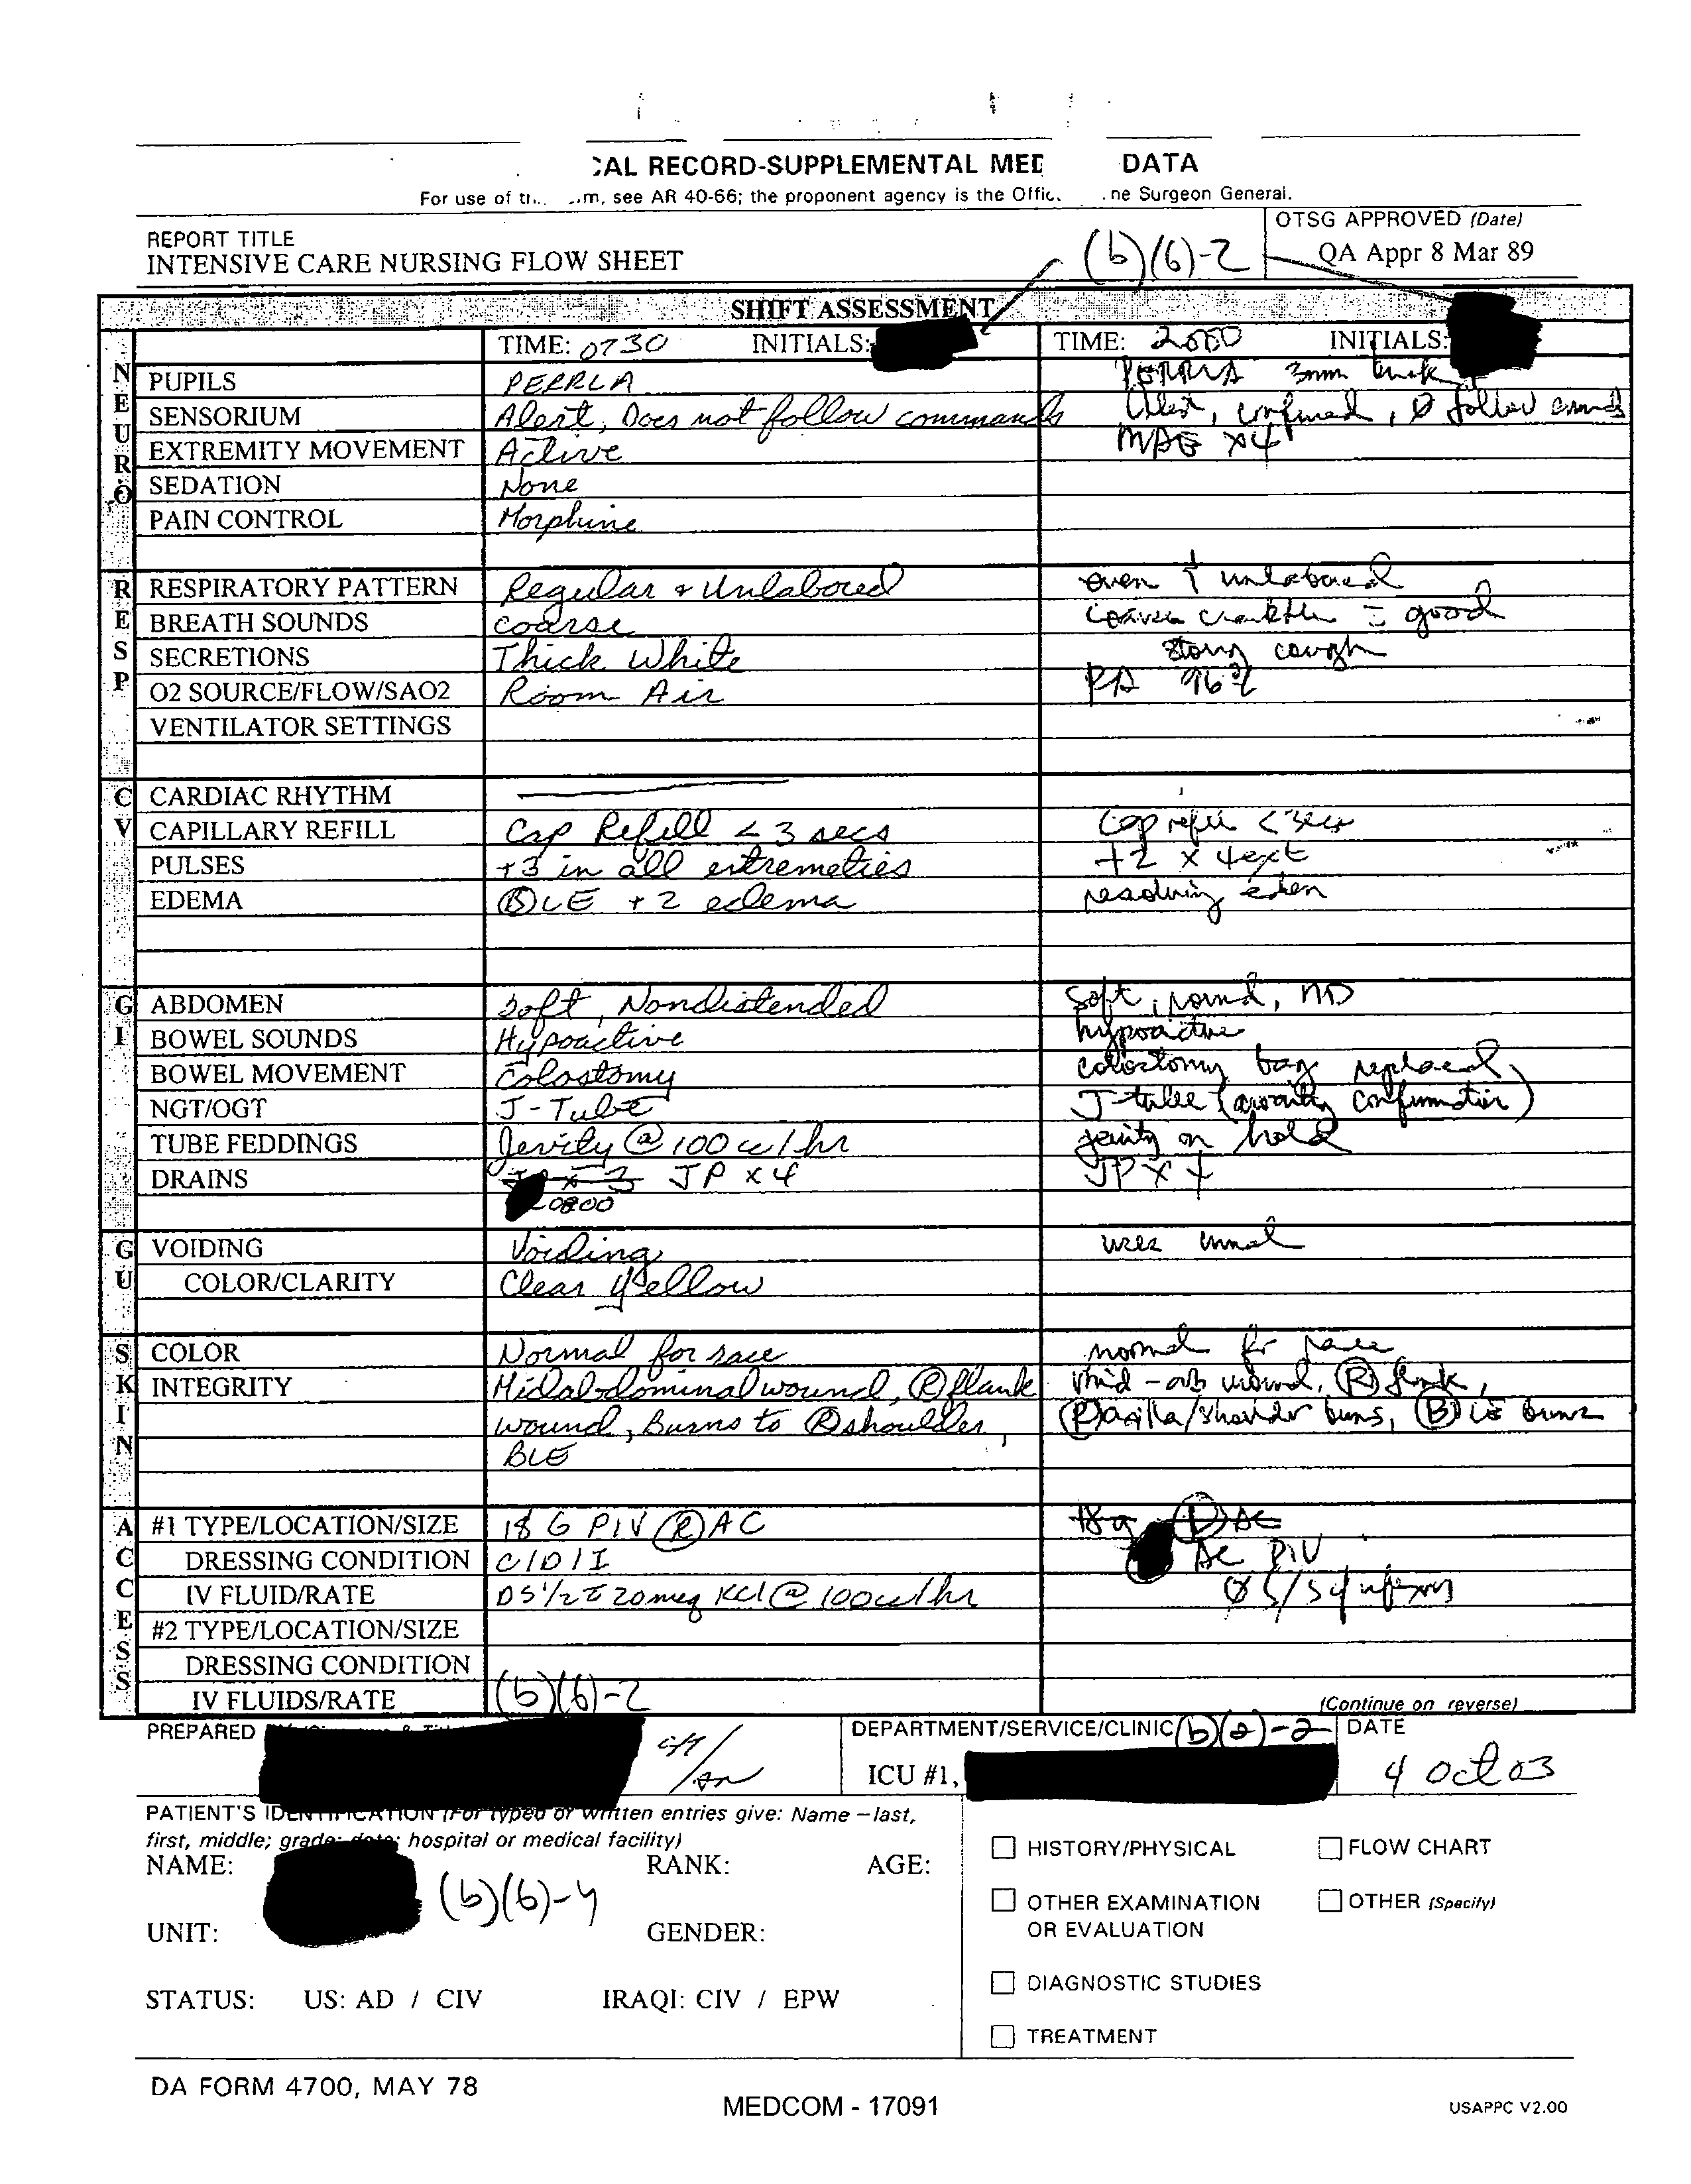 CAL RECORD-SUPPLEMENTAL MED DATA
For use of th.. ..m, see AR 40-66; the proponent agency is the Offic. .ne Surgeon General.
REPORT TITLE
INTENSIVE CARE NURSING FLOW SHEET
(b)(6)-2
OTSG APPROVED (Date)
QA Appr 8 Mar 89
SHIFT ASSESSMENT
TIME: 0730 INITIALS: TIME: 2000 INITIALS:
NEURO
PUPILS PERRLA PERRLA 3mm brisk
SENSORIUM Alert, Does not follow commands Alert, confused, Ø follow cmnds
EXTREMITY MOVEMENT Active MAE x4
SEDATION None
PAIN CONTROL Morphine
RESP
RESPIRATORY PATTERN Regular + Unlabored even + unlabored
BREATH SOUNDS coarse coarse good
SECRETIONS Thick White strong cough
O2 SOURCE/FLOW/SAO2 Room Air RA 96%
VENTILATOR SETTINGS
CV
CARDIAC RHYTHM
CAPILLARY REFILL Cap Refill < 3 secs Cap refill < 3 sec
PULSES +3 in all extremeties +2 x 4 ext
EDEMA BLE +2 edema resolving
GI
ABDOMEN soft, Nondistended Soft, round, ND
BOWEL SOUNDS Hypoactive hypoactive
BOWEL MOVEMENT Colostomy colostomy bag replaced
NGT/OGT J-Tube J-tube (awaiting confirmation)
TUBE FEDDINGS Jevity @ 100 cc/hr jevity on hold
DRAINS JP x 3 JP x 4 JP x 4
0800
GU
VOIDING Voiding uses urinal
COLOR/CLARITY Clear yellow
SKIN
COLOR Normal for race normal for race
INTEGRITY Midabdominal wound, (R) flank mid-ab wound, (R) flank,
wound, Burns to (R) shoulder, (R) axilla/shoulder burns, (B) LE burns
BLE
ACCESS
#1 TYPE/LOCATION/SIZE 18 G PIV (R) AC 18 g AC
DRESSING CONDITION C/D/I AC PIV
IV FLUID/RATE D5 1/2 c 20 meq KCl @ 100cc/hr Ø S/S of
#2 TYPE/LOCATION/SIZE
DRESSING CONDITION
IV FLUIDS/RATE (b)(6)-2
(Continue on reverse)
PREPARED
DEPARTMENT/SERVICE/CLINIC (b)(2)-2
ICU #1,
DATE
4 Oct 03
PATIENT'S IDENTIFICATION (For typed or written entries give: Name - last,
first, middle; grade; date; hospital or medical facility)
NAME: RANK: AGE:
(b)(6)-4
UNIT: GENDER:
STATUS: US: AD / CIV IRAQI: CIV / EPW
HISTORY/PHYSICAL FLOW CHART
OTHER EXAMINATION OTHER (Specify)
OR EVALUATION
DIAGNOSTIC STUDIES
TREATMENT
DA FORM 4700, MAY 78
MEDCOM - 17091
USAPPC V2.00